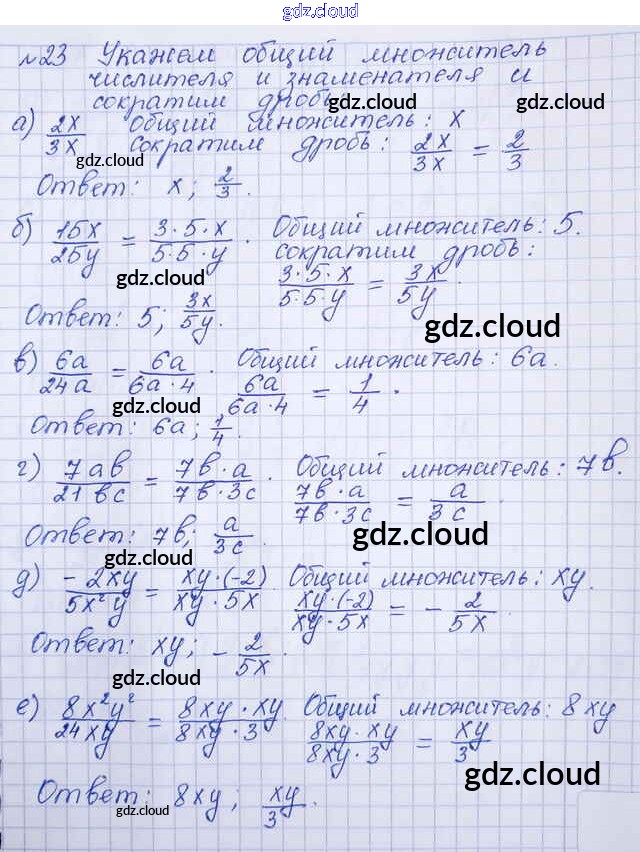 gdz.cloud
№23 Укажем общий множитель
числителя и знаменателя и
сократим дробь:
gdz.cloud gdz.cloud
а) 2x/3x Общий множитель: x
сократим дробь: 2x/3x = 2/3
gdz.cloud
Ответ: x; 2/3.
б) 15x/25y = 3·5·x/5·5·y. Общий множитель: 5.
сократим дробь:
gdz.cloud
3·5·x/5·5·y = 3x/5y.
Ответ: 5; 3x/5y.
gdz.cloud
в) 6a/24a = 6a/6a·4. Общий множитель: 6a.
6a/6a·4 = 1/4.
gdz.cloud
Ответ: 6a; 1/4.
г) 7ab/21bc = 7b·a/7b·3c. Общий множитель: 7b.
7b·a/7b·3c = a/3c.
Ответ: 7b; a/3c.
gdz.cloud
gdz.cloud
д) -2xy/5x²y = xy·(-2)/xy·5x. Общий множитель: xy.
xy·(-2)/xy·5x = - 2/5x.
Ответ: xy; - 2/5x.
gdz.cloud
е) 8x²y²/24xy = 8xy·xy/8xy·3. Общий множитель: 8xy
8xy·xy/8xy·3 = xy/3
gdz.cloud
gdz.cloud
Ответ: 8xy; xy/3.
gdz.cloud